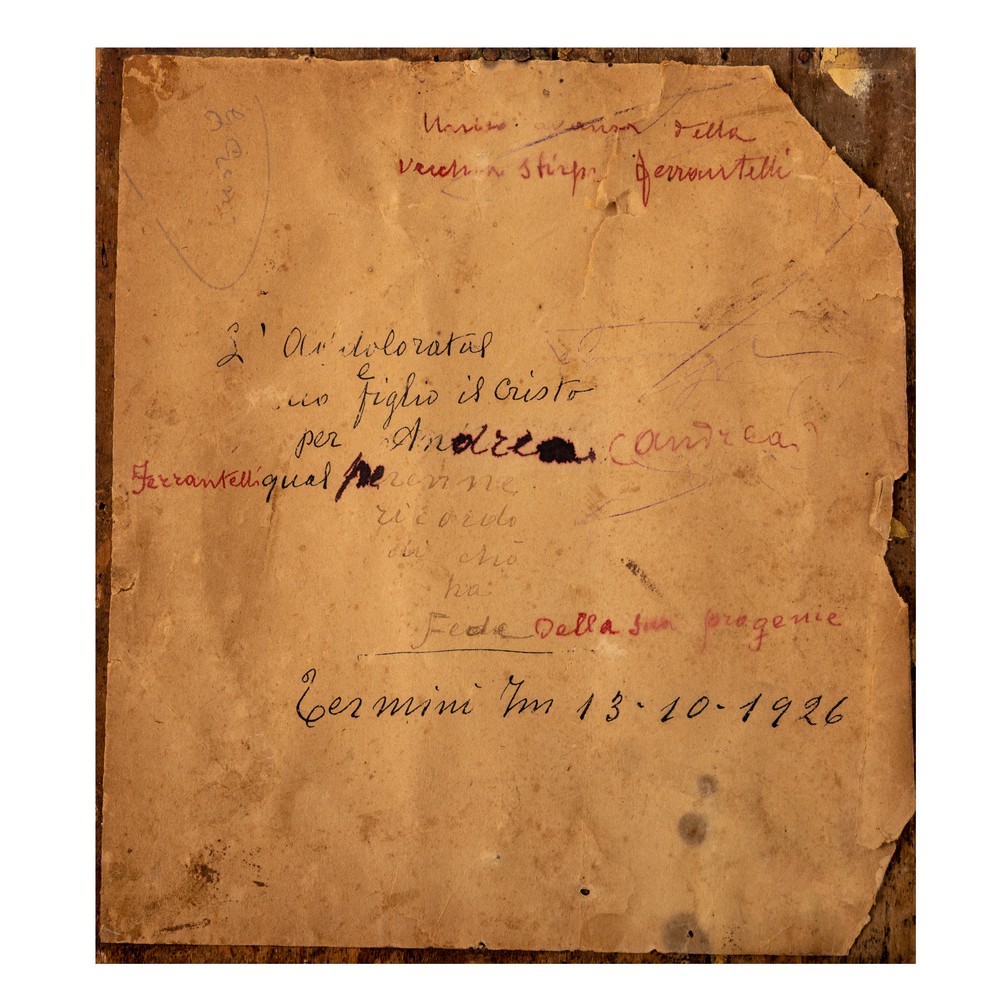 della
vecchia stirpe Ferrantelli
L' Addolorata
e
figlio il Cristo
per Andrea (andrea)
Ferrantelli qual perenne
ricordo
di chi
ha
Fede della sua progenie
Termini Im 13-10-1926